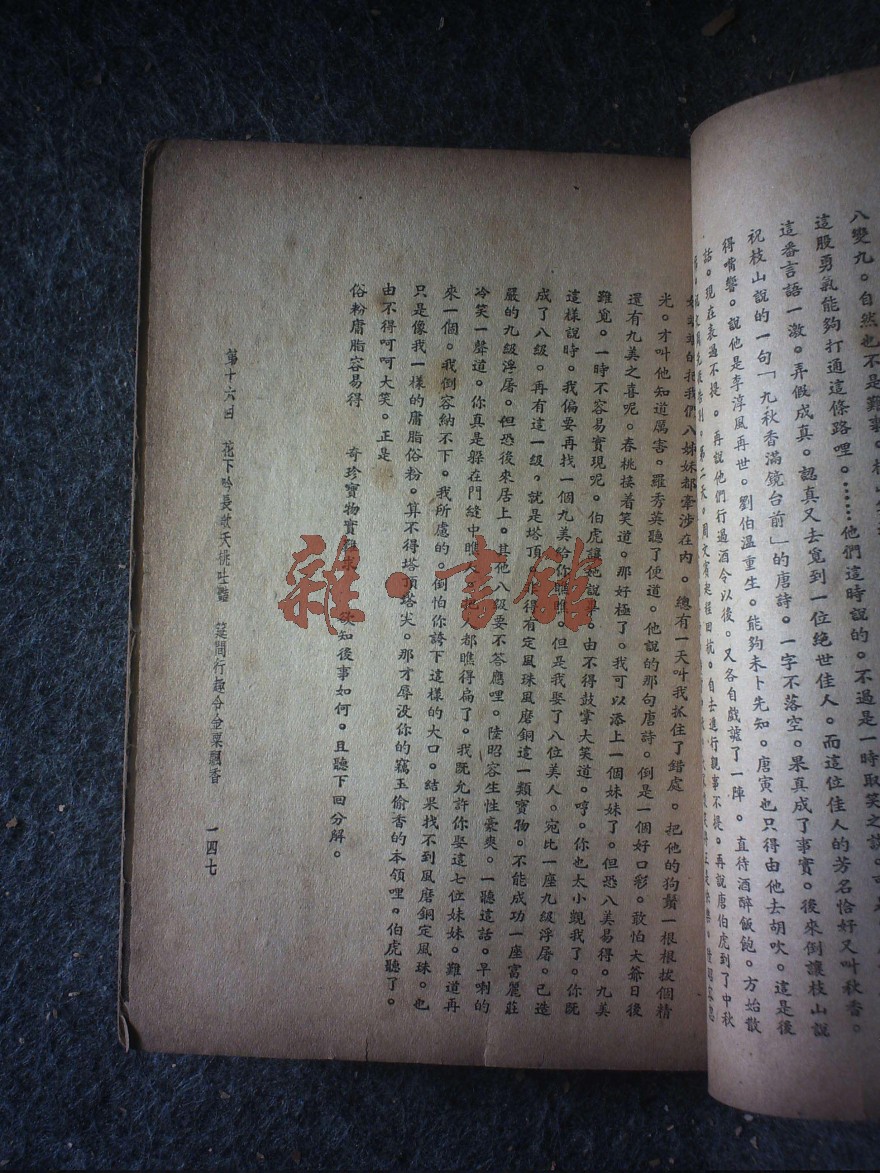 八變九。自然也不是難事。
這股勇氣能夠打通這條路哩。……他們這時說的。不過是一時取笑之談。
這番言語一激。弄假成真。認真又去覓到一位絕世佳人。而這位佳人的芳名恰好又叫秋香。
祝枝山說的一句「九秋香滿鏡台前」的唐詩。一字不落空。果真成了事實。後來倒讓枝山說
得嘴響。說他是李淳風再世。劉伯溫重生。能夠未卜先知。唐寅也只得由他去胡吹。這是後
話。現在表過不提。再說他們行過酒令以後。又各自戲謔了一陣。直待酒醉飯飽。方始散
第二天。周文賓起程回杭。自去進行親事不提。再說唐伯虎到了中秋
我們八姊妹都牽涉在內。總有一天叫我抓住了錯處。把他的狗鬍一根根拔個精
光。才叫他知道厲害。羅秀英聽了便道。他說的那句唐詩。倒是一個好口彩。敢怕大爺日後
還有九美之喜呢。春桃接着笑道。那好極了。我可以添上一個妹妹了。但恐八美易得。九美
難覓。一時不容易實現呢。伯虎讓她說畢。由不得鼓掌大笑道。哼。你也太小覷我了。你既
這樣說時。我偏要再找一個九美給你瞧瞧。但是我娶了八位美人。宛比一座九級浮屠。已造
成了八級。再有這一級。就是塔頂。得有定風珠風磨銅這一類寶物。不能成功一座富麗莊
嚴的九級浮屠。但恐後來居上。其他八級要不答應哩。陸昭容生性豪爽。一聽這話。早喇的
冷笑一聲道。你真是躲在門縫中瞧人。把人都瞧得扁了。我既允許你娶這七位妹妹。難道再
來一個。我倒容納不下。我所慮的。倒怕你誇下這樣的大口。結果找不到風磨銅定風珠。也
只是像我一樣的庸脂俗粉。算不得塔頂塔尖。那才辱沒你的竊玉偷香的本領哩。伯虎聽了。
由不得呵呵大笑。正是
俗粉庸脂容易得 奇珍寶物實 知後事如何。且聽下回分解。
第十六回 花下吟長歌夭桃吐豔 筵間行趣令金粟飄香 一四七
雜·書館